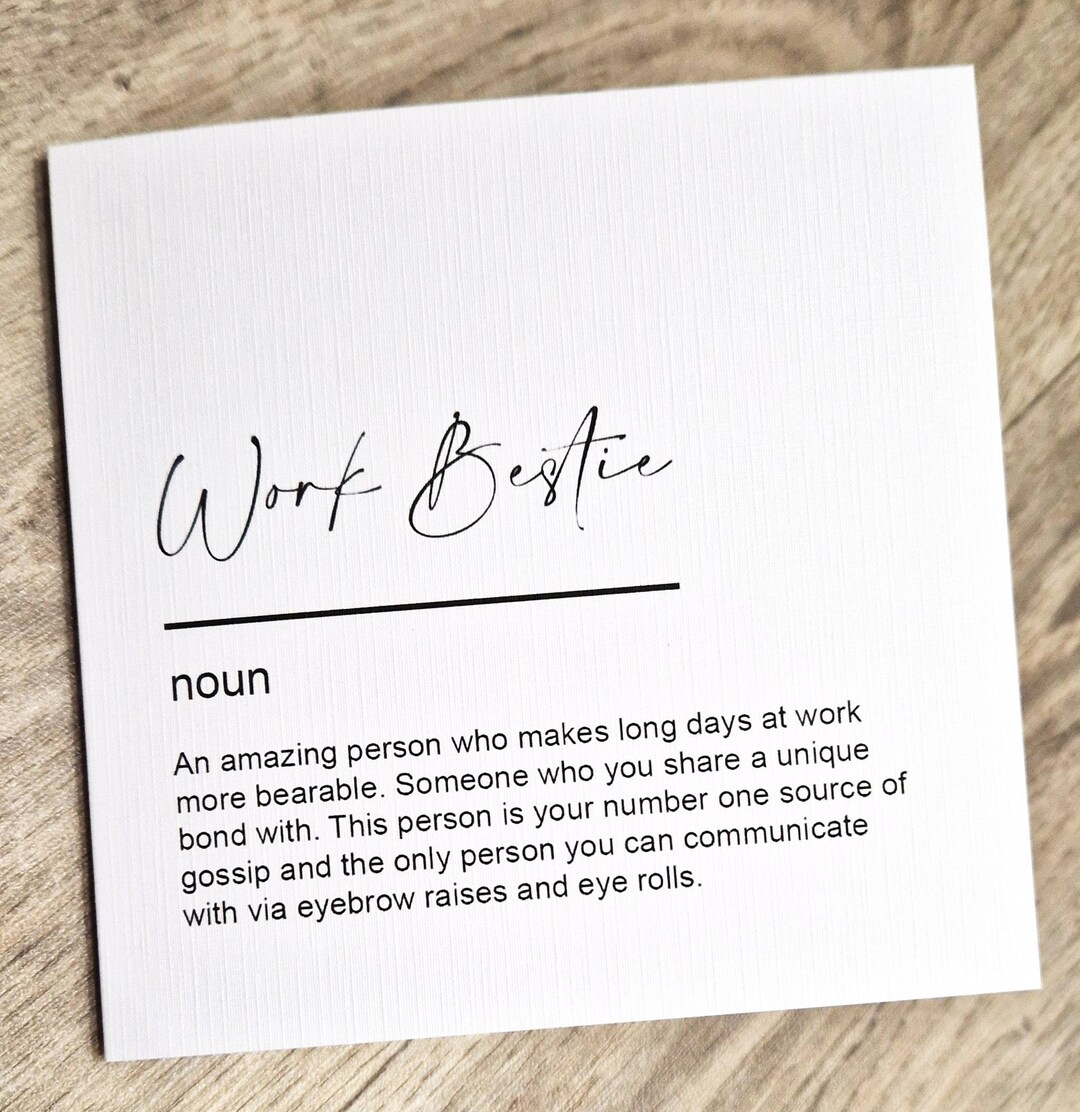 Work Bestie
noun
An amazing person who makes long days at work
more bearable. Someone who you share a unique
bond with. This person is your number one source of
gossip and the only person you can communicate
with via eyebrow raises and eye rolls.